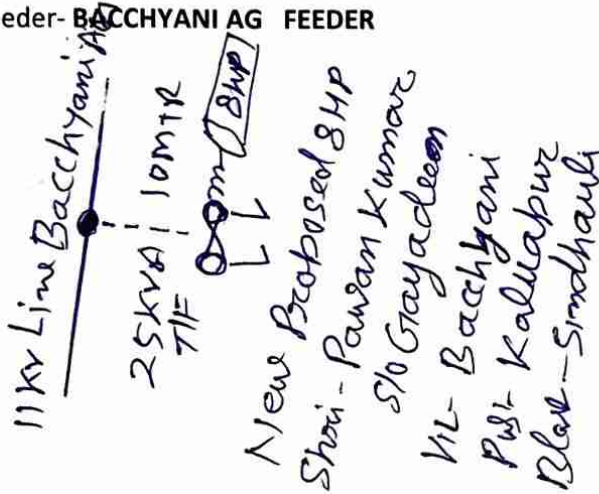 eeder- BACCHYANI AG FEEDER
11 KV Line Bacchyani AG
25KVA 10MTR
T/F
8HP
New Proposed 8HP
Shri - Pawan Kumar
S/O Gayadeen
Vil- Bacchyani
Post- Kalliapur
Block - Sindhauli